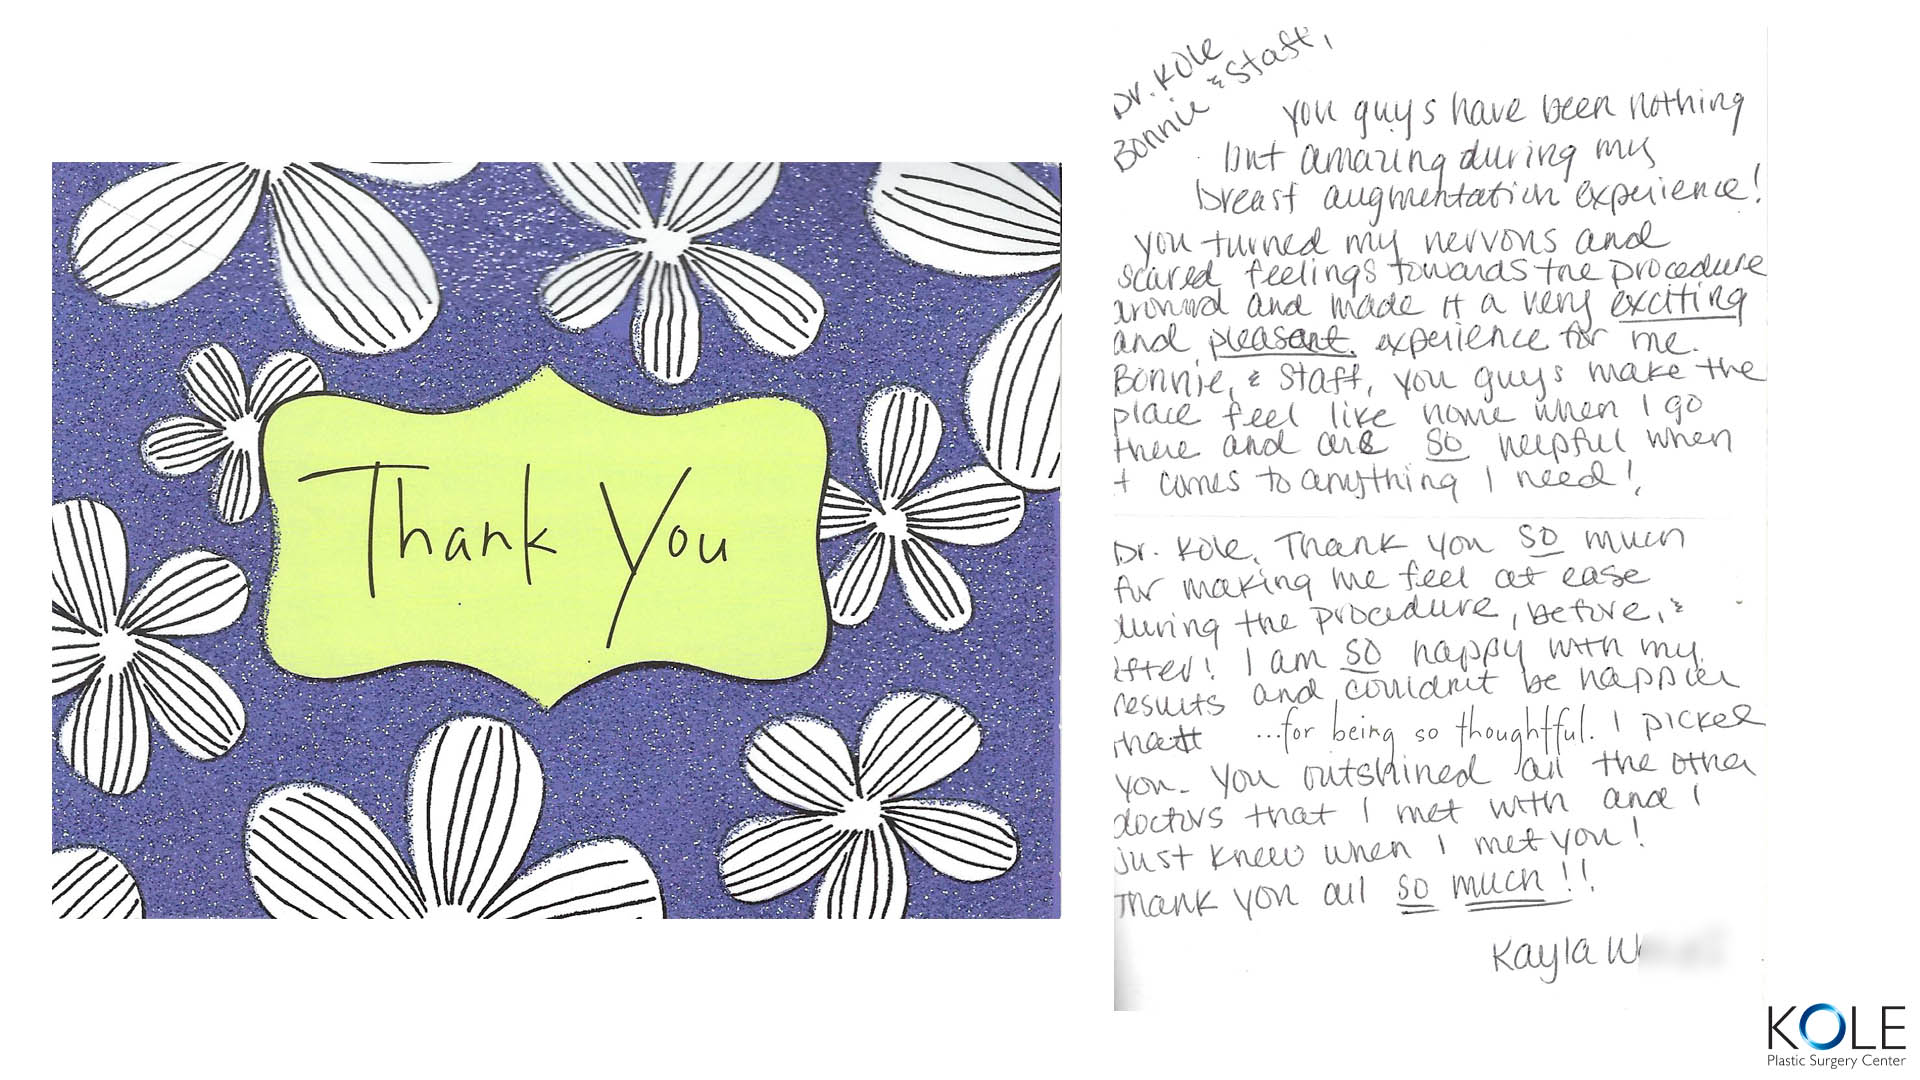 Thank You
Dr. Kole
Bonnie & Staff,
You guys have been nothing
but amazing during my
breast augmentation experience!
You turned my nervous and
scared feelings towards the procedure
around and made it a very exciting
and pleasant experience for me.
Bonnie, & Staff, you guys make the
place feel like home when I go
there and are so helpful when
it comes to anything I need!
Dr. Kole, Thank you so much
for making me feel at ease
during the procedure, before, &
after! I am so happy with my
results and couldn't be happier
that ...for being so thoughtful. I picked
you. You outshined all the other
doctors that I met with and I
just knew when I met you!
Thank you all so much!!
Kayla W
KOLE
Plastic Surgery Center